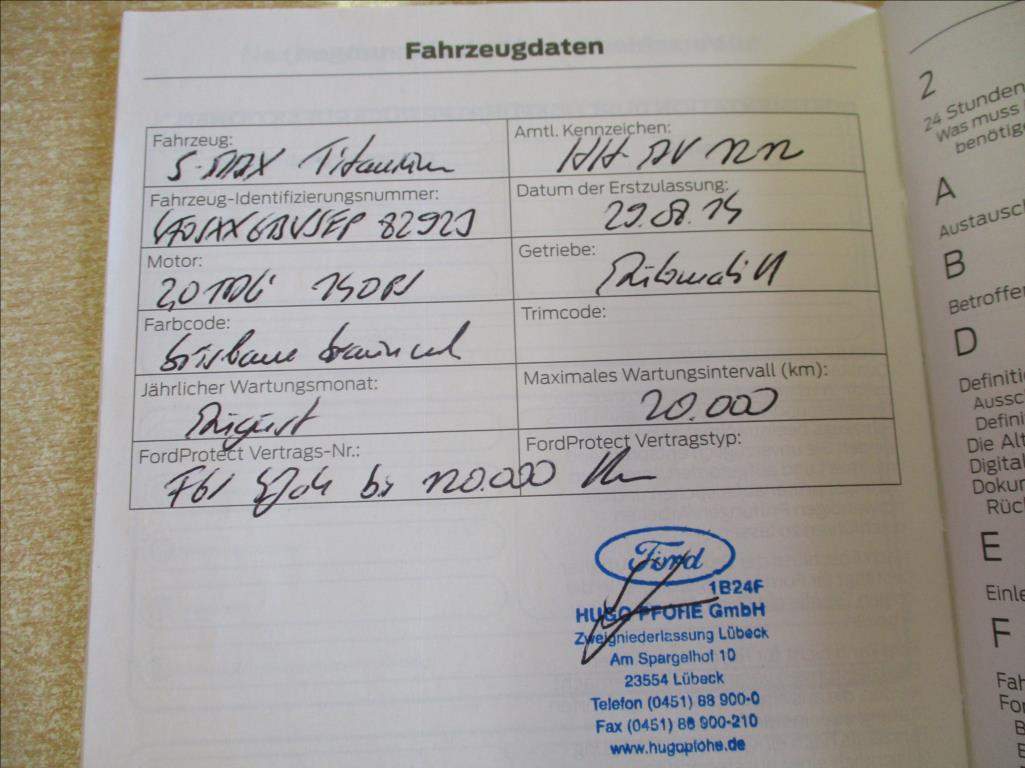 Fahrzeugdaten
Fahrzeug:
S-MAX Titanium
Amtl. Kennzeichen:
Fahrzeug-Identifizierungsnummer:
82929
Datum der Erstzulassung:
29.08.14
Motor:
2,0 TDCi 140PS
Getriebe:
Automatik
Farbcode:
brisbane braun
Trimcode:
Jährlicher Wartungsmonat:
August
Maximales Wartungsintervall (km):
20.000
FordProtect Vertrags-Nr.:
FordProtect Vertragstyp:
bis 120.000 Km
Ford
1B24F
HUGO PFOHE GmbH
Zweigniederlassung Lübeck
Am Spargelhof 10
23554 Lübeck
Telefon (0451) 88 900-0
Fax (0451) 88 900-210
www.hugopfohe.de
2
24 Stunden
Was muss
benötig
A
Austausch
B
Betroffe
D
Definiti
Aussc
Defini
Die Alt
Digital
Dokun
Rüc
E
Einle
F
Fah
For